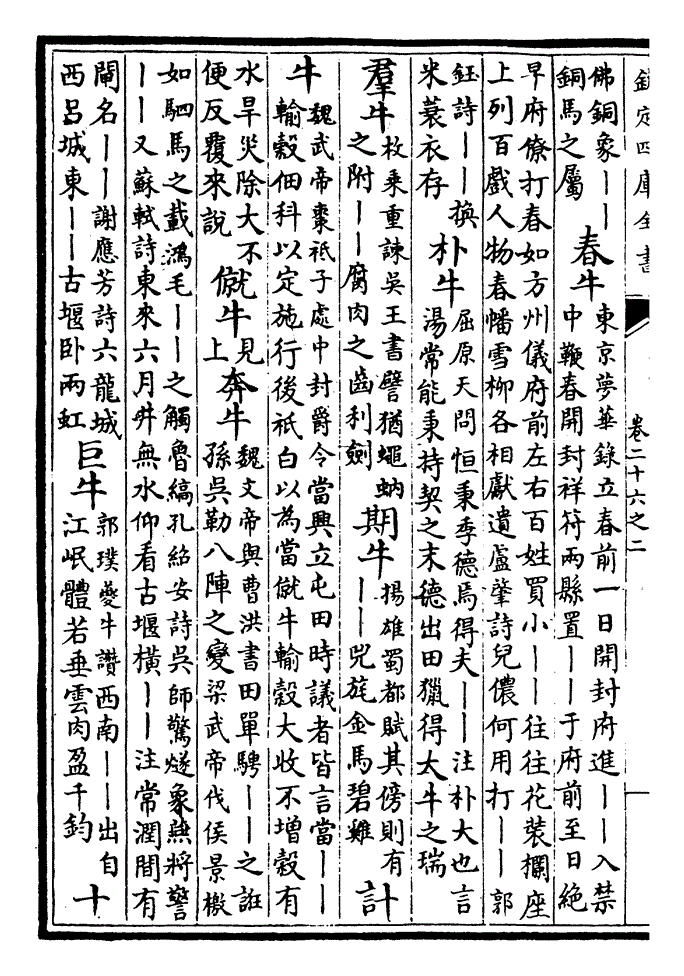 欽定四庫全書
卷二十六之二
佛銅象丨丨
銅馬之屬
春牛
東京夢華錄立春前一日開封府進丨丨入禁
中鞭春開封祥符兩縣置丨丨于府前至日絶
早府僚打春如方州儀府前左右百姓買小丨丨往往花裝欄座
上列百戲人物春幡雪柳各相獻遺盧肇詩兒儂何用打丨丨郭
鈺詩丨丨換
米蓑衣存
朴牛
屈原天問恒秉季德焉得夫丨丨注朴大也言
湯常能秉持契之末德出田獵得大牛之瑞
羣牛
枚乘重諫吳王書譬猶蠅蚋
之附丨丨腐肉之齒利劍
期牛
揚雄蜀都賦其傍則有
丨丨兕旄金馬碧雞
計
牛
魏武帝棗祗子處中封爵令當興立屯田時議者皆言當丨丨
輸穀佃科以定施行後祗白以為當僦牛輸穀大收不增穀有
水旱災除大不
便反覆來說
僦牛
見
上
奔牛
魏文帝與曹洪書田單騁丨丨之誑
孫吳勒八陣之變梁武帝伐侯景檄
如駟馬之載鴻毛丨丨之觸魯縞孔紹安詩吳師驚燧象燕將警
丨丨又蘇軾詩東來六月井無水仰看古堰橫丨丨注常潤間有
閘名丨丨謝應芳詩六龍城
西呂城東丨丨古堰卧兩虹
巨牛
郭璞夔牛讚西南丨丨出自
江岷體若垂雲肉盈千鈞
十